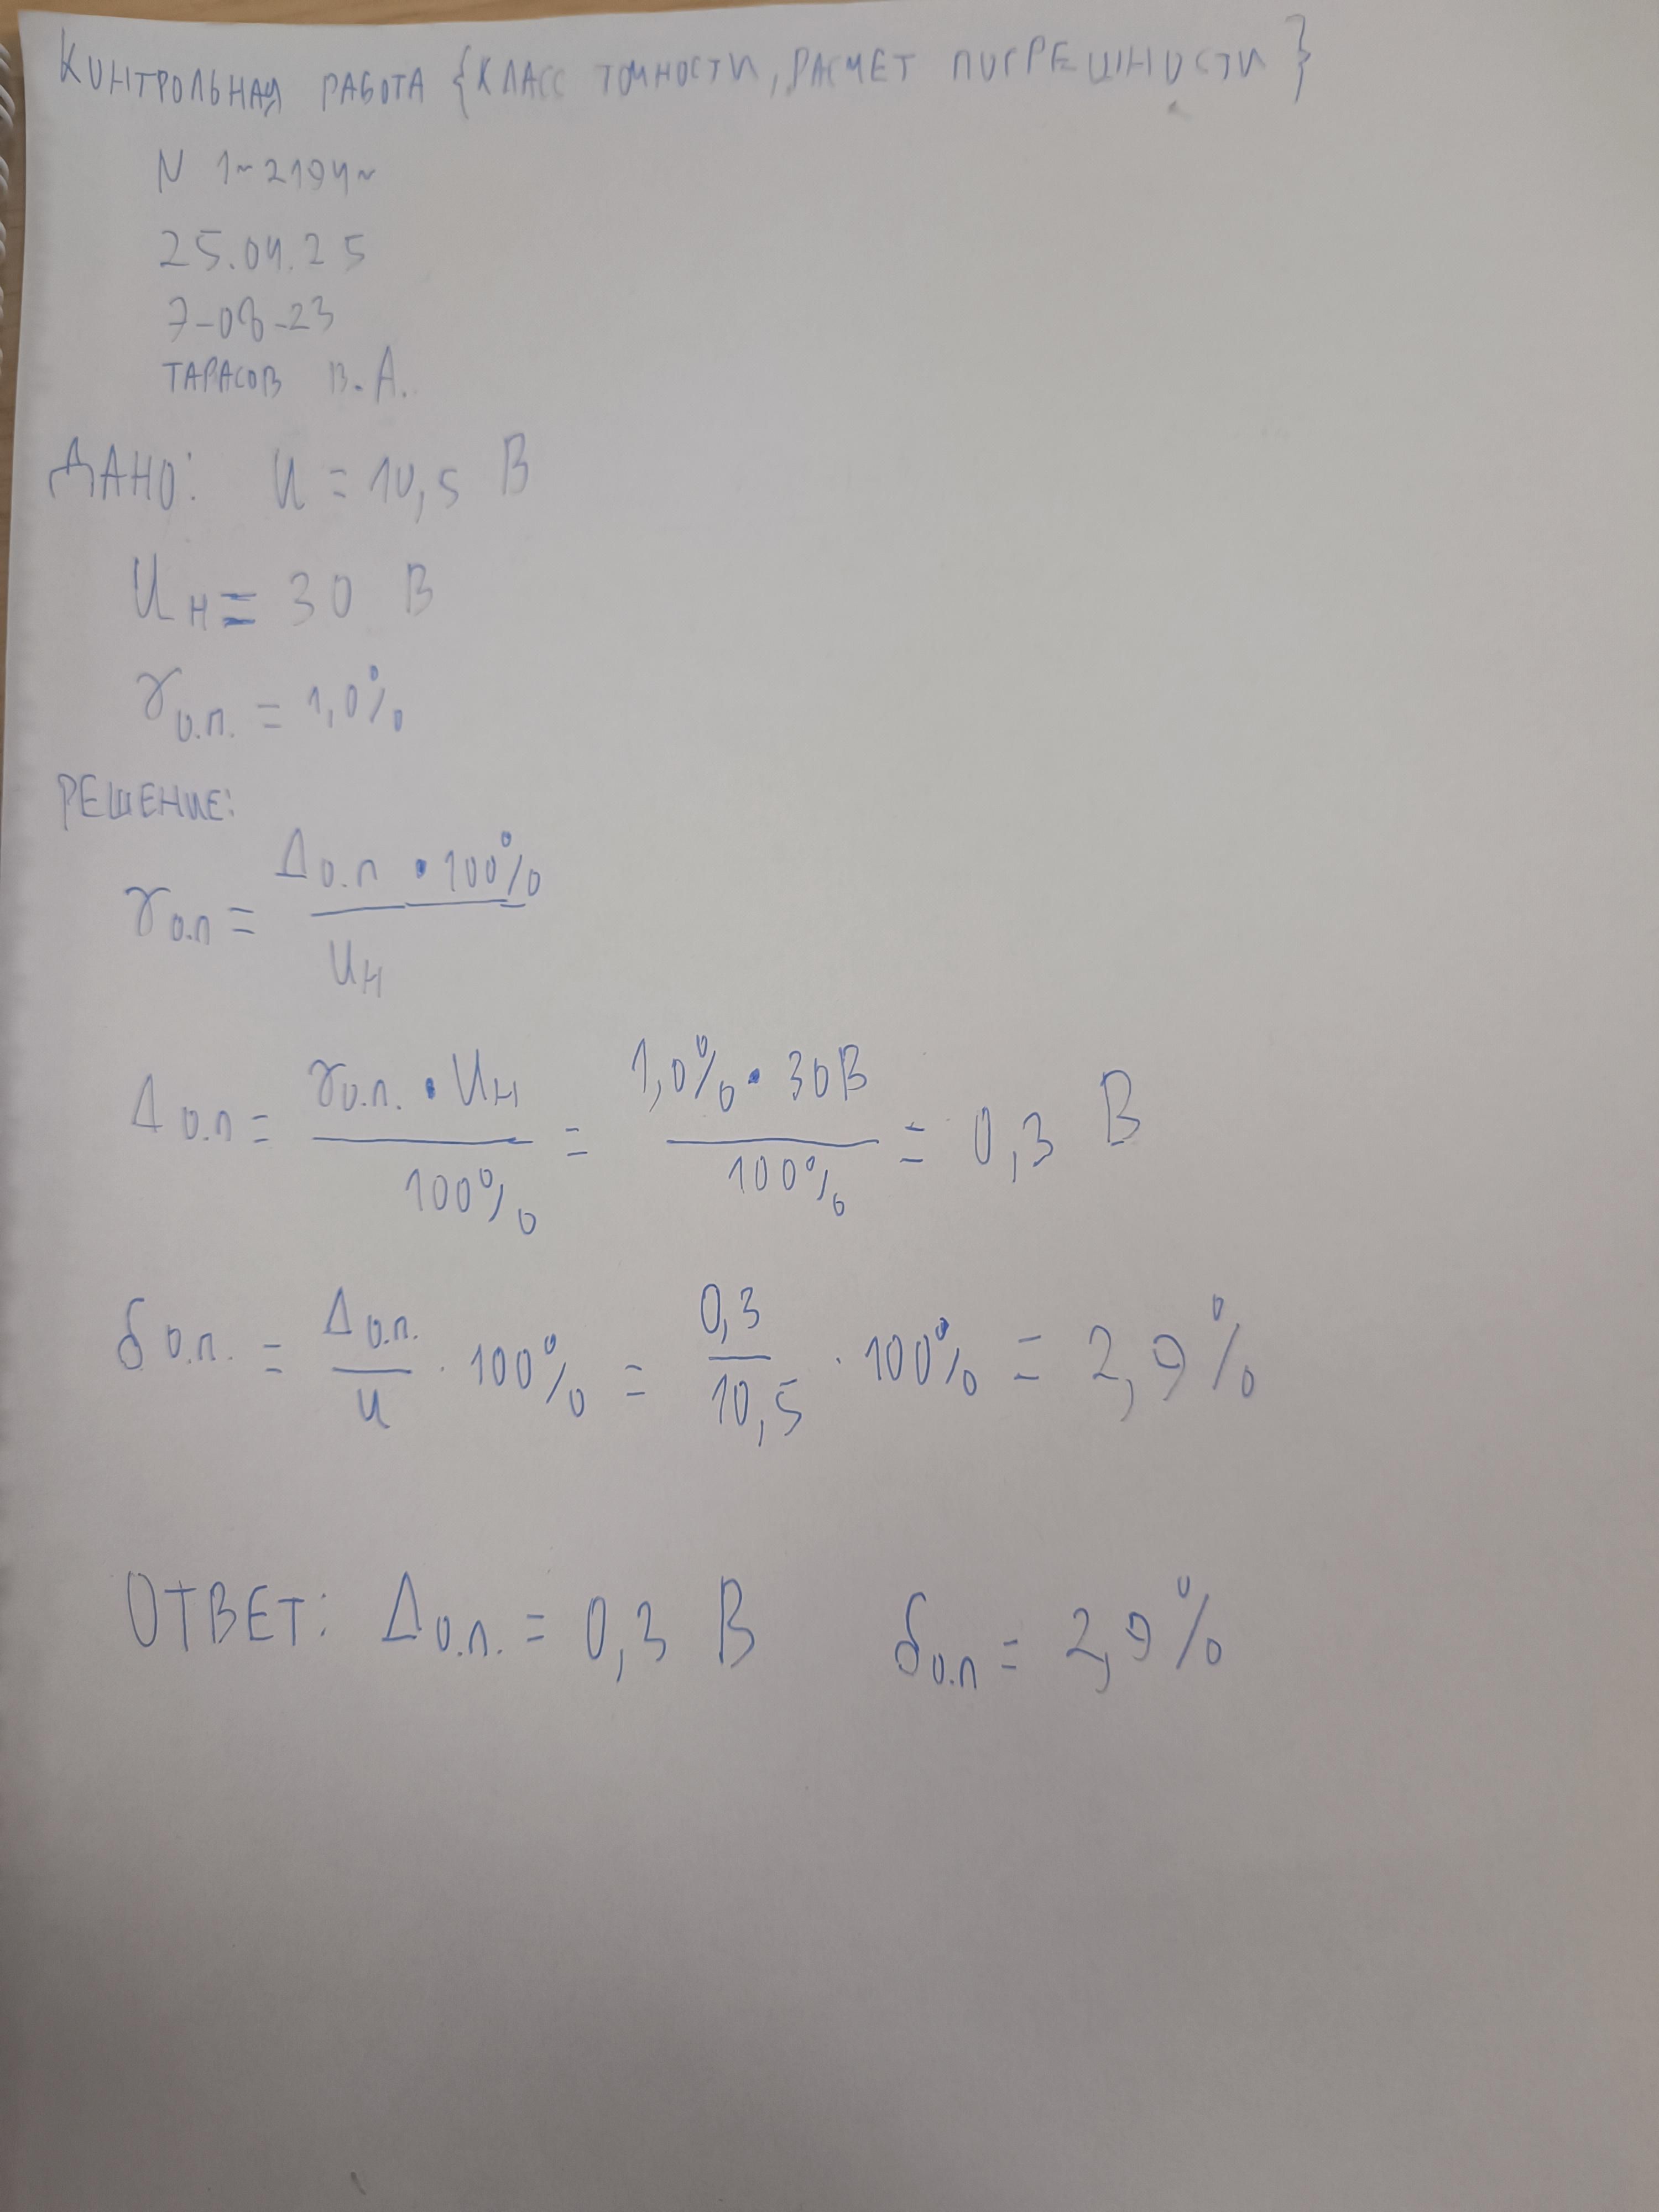 КОНТРОЛЬНАЯ РАБОТА {КЛАСС ТОЧНОСТИ, РАСЧЕТ ПОГРЕШНОСТИ}
N 1~2194~
25.04.25
7-08-23
ТАРАСОВ В.А.
ДАНО: U = 10,5 В
Uн = 30 В
γо.п. = 1,0%
РЕШЕНИЕ:
γо.п = Δо.п • 100% / Uн
Δо.п = γо.п. • Uн / 100% = 1,0% • 30В / 100% = 0,3 В
δо.п. = Δо.п. / U · 100% = 0,3 / 10,5 · 100% = 2,9%
ОТВЕТ: Δо.п. = 0,3 В δо.п = 2,9%